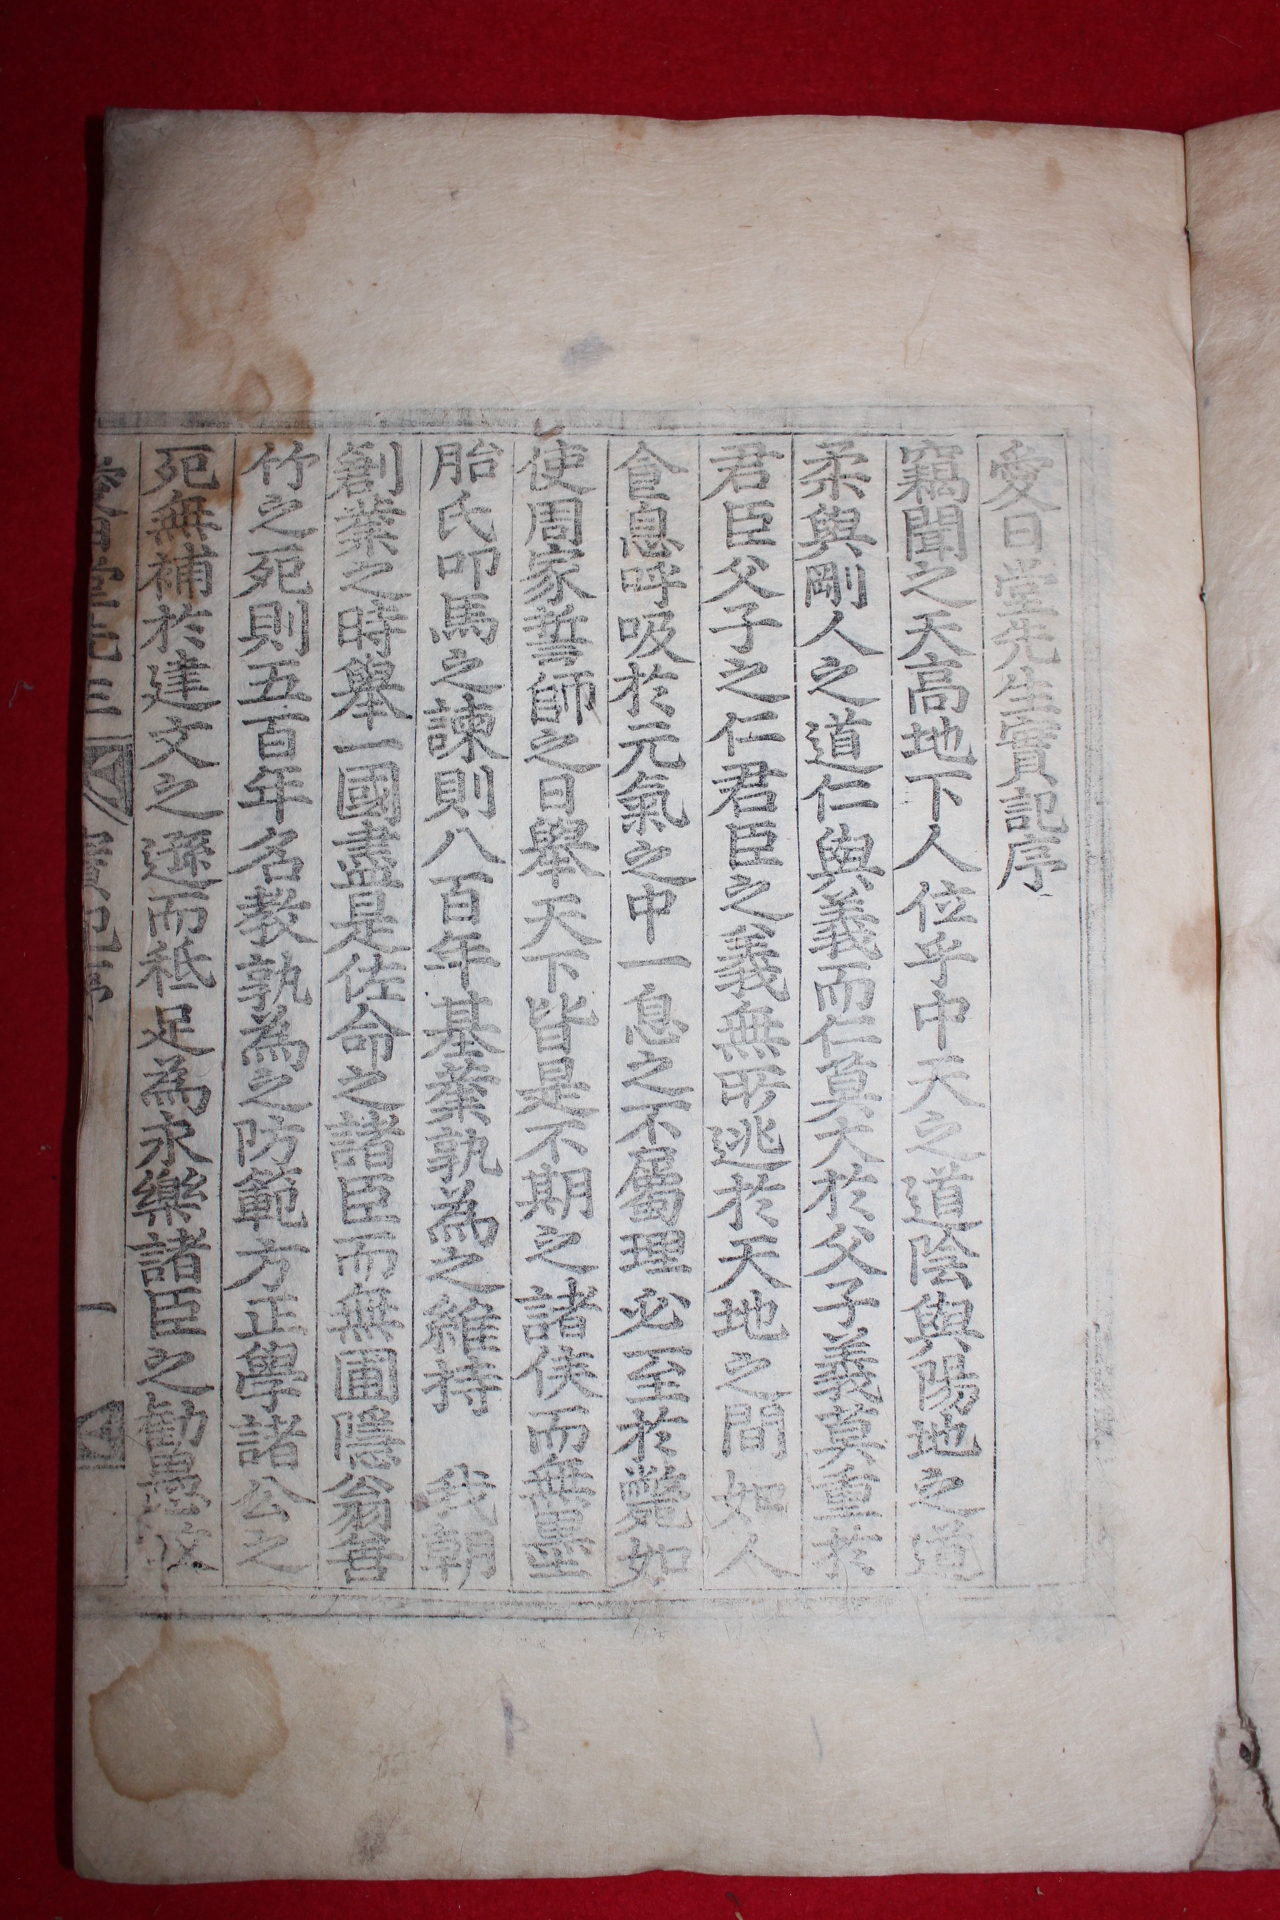 愛日堂先生實記序
竊聞之天高地下人位乎中天之道陰與陽地之道
柔與剛人之道仁與義而仁莫大於父子義莫重於
君臣父子之仁君臣之義無所逃於天地之間如人
食息呼吸於元氣之中一息之不屬理必至於斃如
使周家誓師之日舉天下皆是不期之諸侯而無墨
胎氏叩馬之諫則八百年基業孰爲之維持 我朝
創業之時舉一國盡是佐命之諸臣而無圃隱翁善
竹之死則五百年名教孰爲之防範方正學諸公之
死無補於建文之遜而秪足爲永樂諸臣之勸愚
實記序
一